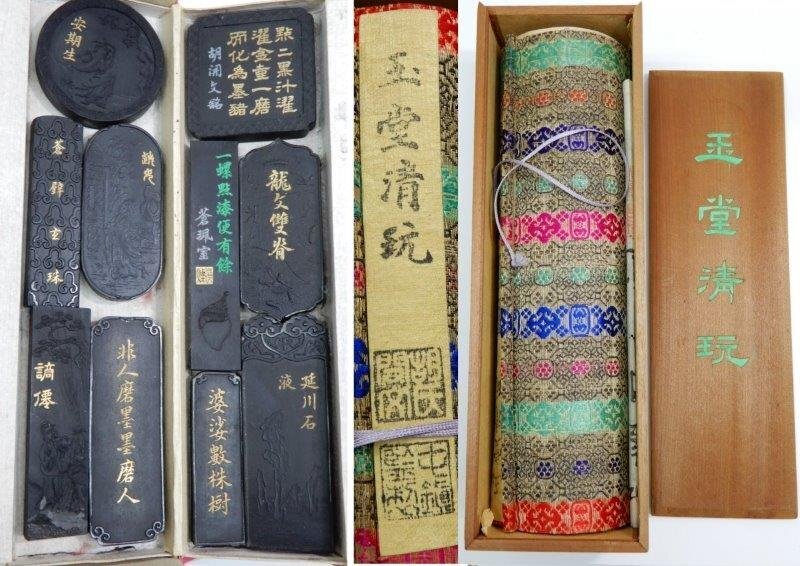 安期生
蒼璧玄珠
謫僊
非人磨墨墨磨人
點二黑汁濯
濯金壺一磨
而化為墨豬
胡開文銘
一螺點漆便有餘
蒼珮室
龍文雙脊
婆娑數株樹
延川石
液
玉堂清玩
玉堂清玩